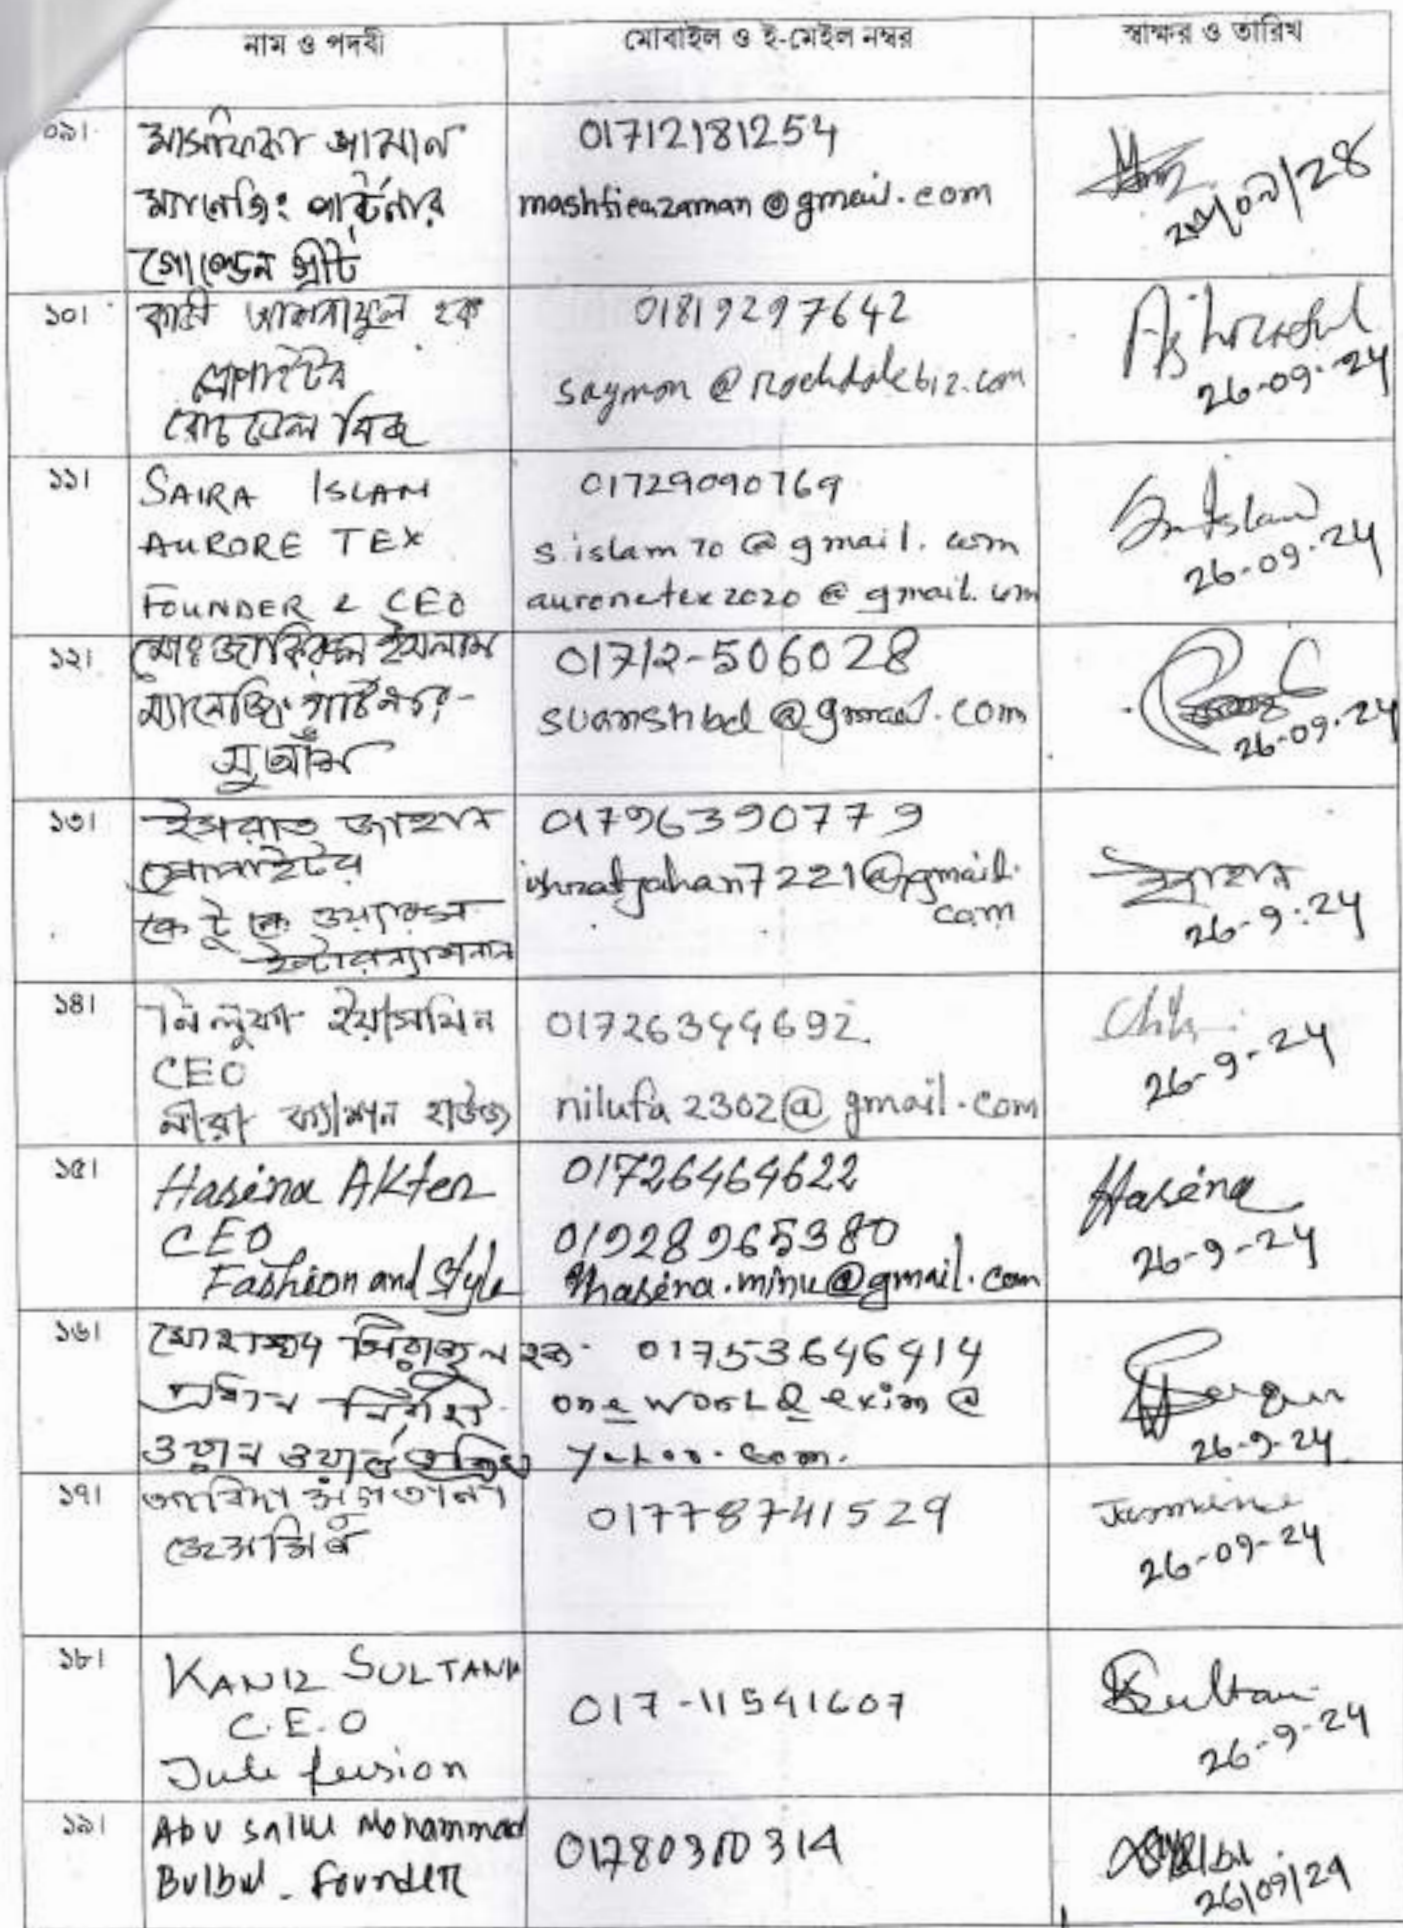 নাম ও পদবী
মোবাইল ও ই-মেইল নম্বর
স্বাক্ষর ও তারিখ
০৯।
মাসফিকা জামান
ম্যানেজিং পার্টনার
গোল্ডেন প্রীট
01712181254
mashficazaman@gmail.com
১০।
কাজী আশরাফুল হক
প্রোপাইটর
রোচডেল বিজ
01819297642
saymon@rochdalebiz.com
Ashraful
26-09-24
১১।
SAIRA ISLAM
AURORE TEX
FOUNDER & CEO
01729090769
s.islam70@gmail.com
auroretex2020@gmail.com
26-09-24
১২।
মোঃ জাকিরুল ইসলাম
ম্যানেজিং পার্টনার-
সুআঁশ
01712-506028
suanshbd@gmail.com
26-09-24
১৩।
ইসরাত জাহান
প্রোপাইটর
কে টু কে ওয়্যারস
ইন্টারন্যাশনাল
01796390779
ishratjahan7221@gmail.
com
26-9-24
১৪।
নিলুফা ইয়াসমিন
CEO
নীরা ফ্যাশন হাউজ
01726344692.
nilufa2302@gmail.com
26-9-24
১৫।
Hasina AKter
CEO
Fashion and Style
01726464622
01928965380
hasina.minu@gmail.com
Hasina
26-9-24
১৬।
মোহাম্মদ সিরাজুল হক
প্রধান নির্বাহী
ওয়ান ওয়ার্ল্ড এক্সিম
01753646414
one world exim @
yahoo.com.
26-9-24
১৭।
আবিদা সুলতানা
01778741529
Jasmine
26-09-24
১৮।
KANIZ SULTANA
C.E.O
Jute fusion
017-11541607
KSultana
26-9-24
১৯।
Abu Salue Mohammad
Bulbul - Founder
01780300314
26/09/24